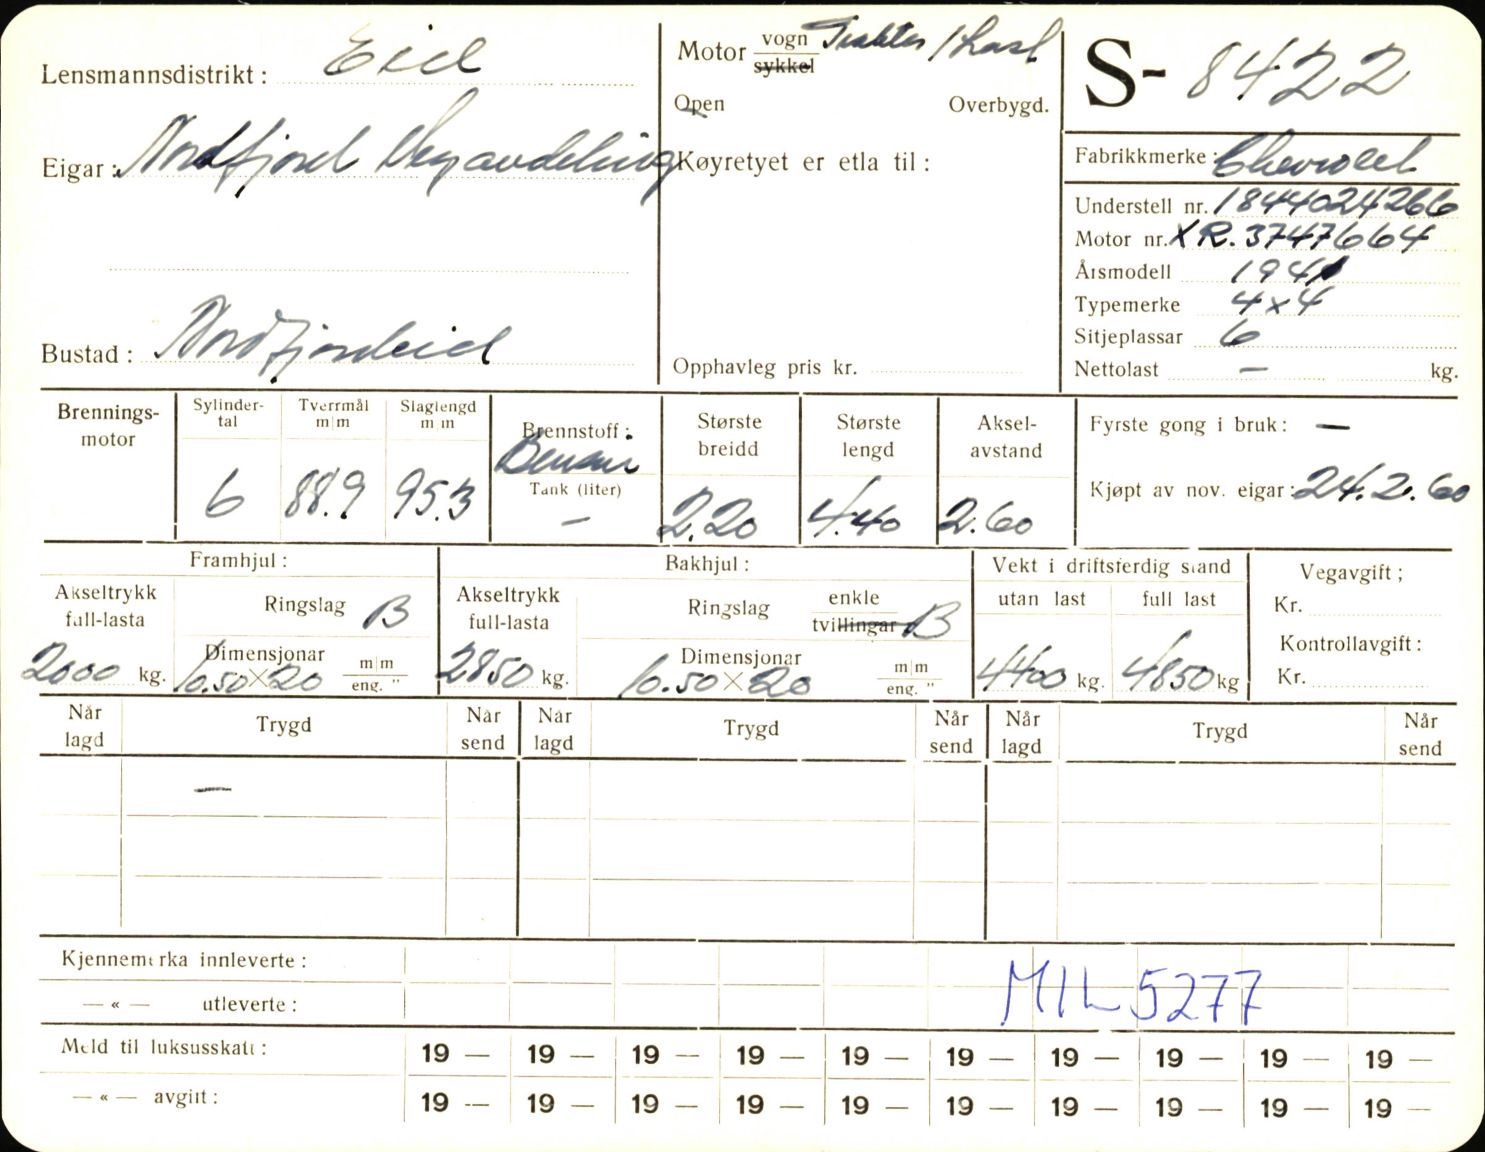 Lensmannsdistrikt: Eid
Eigar: Nordfjord Vegavdeling
Bustad: Nordfjordeid
Motor vogn Traktor / Last
sykkel
Open Overbygd.
Køyretyet er etla til:
Opphavleg pris kr.
S- 8422
Fabrikkmerke: Chevrolet
Understell nr. 1844024266
Motor nr. XR. 3747664
Årsmodell 1941
Typemerke 4x4
Sitjeplassar 6
Nettolast — kg.
Brennings-motor
Sylinder-tal 6
Tverrmål m|m 88.9
Slaglengd m|m 95.3
Brennstoff: Bensin
Tank (liter) —
Største breidd 2.20
Største lengd 4.40
Aksel-avstand 2.60
Fyrste gong i bruk: —
Kjøpt av nov. eigar: 24.2.60
Framhjul:
Akseltrykk full-lasta 2000 kg.
Ringslag B
Dimensjonar 10.50 × 20 m|m eng. "
Bakhjul:
Akseltrykk full-lasta 2850 kg.
Ringslag enkle tvillingar B
Dimensjonar 10.50 × 20 m|m eng. "
Vekt i driftsferdig stand
utan last 4400 kg.
full last 4850 kg
Vegavgift;
Kr.
Kontrollavgift:
Kr.
Når lagd Trygd Når send Når lagd Trygd Når send Når lagd Trygd Når send
—
Kjennemerka innleverte:
— « — utleverte:
MIL 5277
Meld til luksusskatt: 19 — 19 — 19 — 19 — 19 — 19 — 19 — 19 — 19 — 19 —
— « — avgift: 19 — 19 — 19 — 19 — 19 — 19 — 19 — 19 — 19 — 19 —